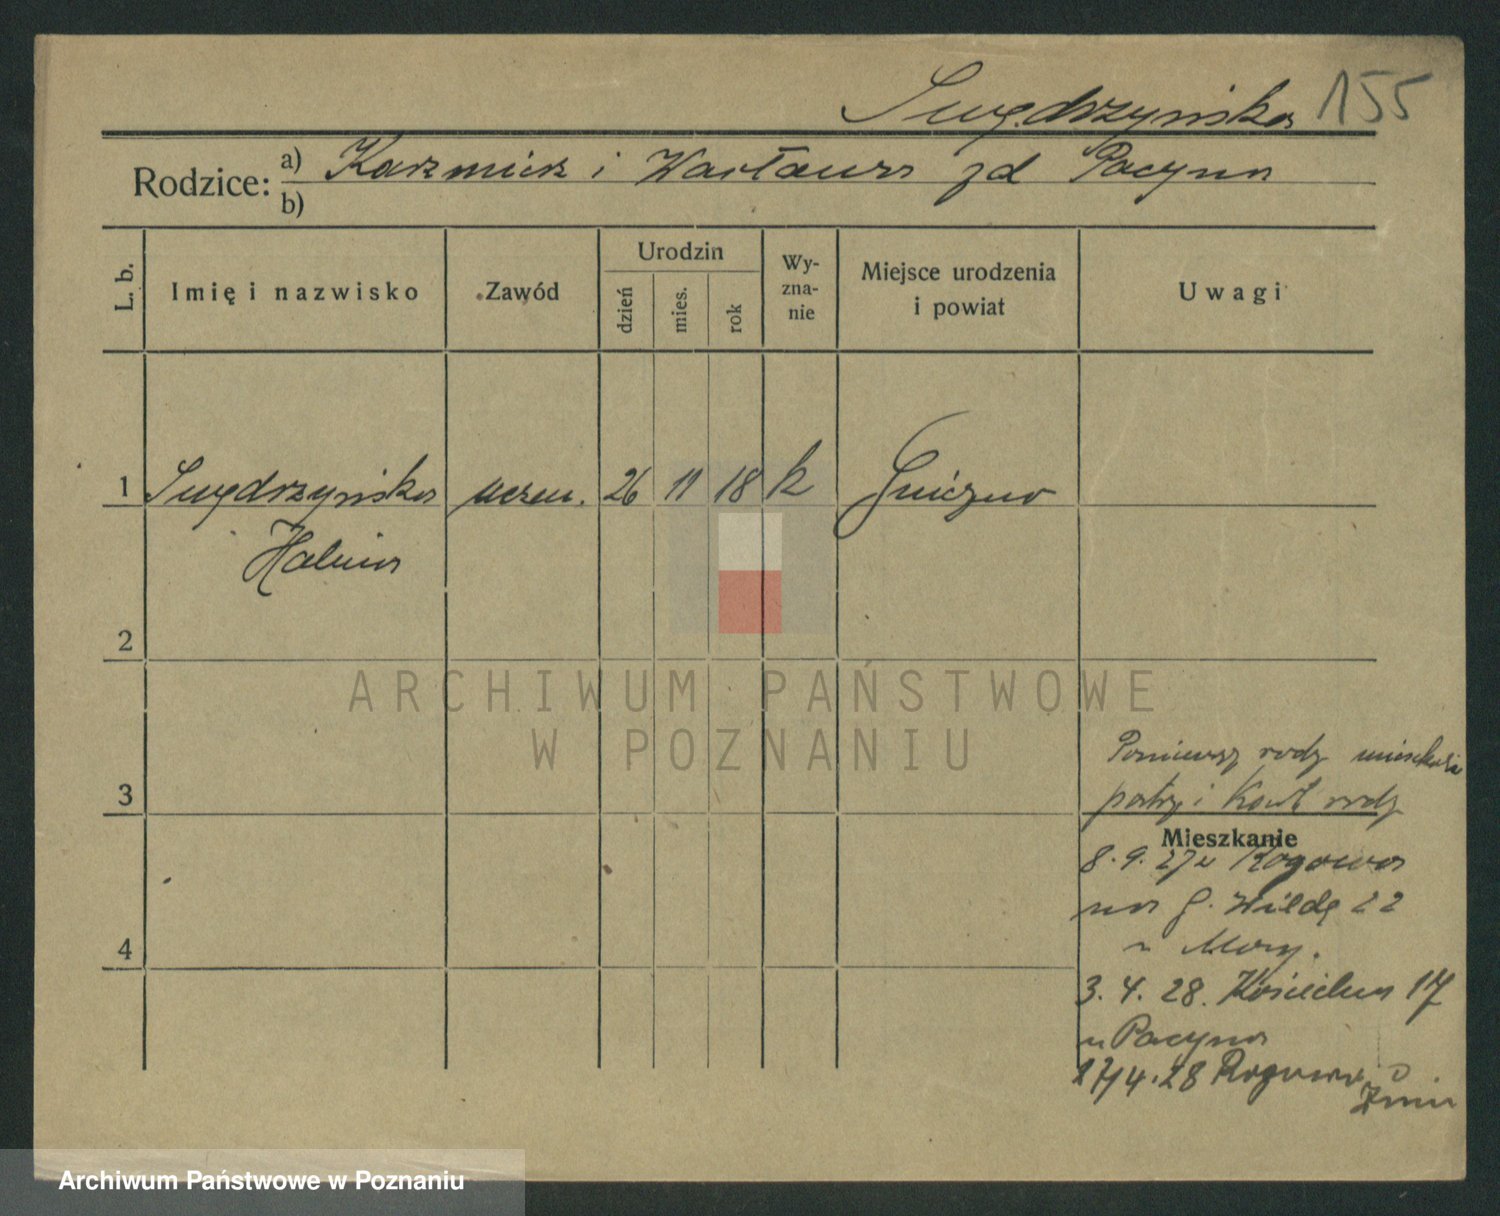 Swędrzyńska 155
Rodzice: a) Kazmierz i Wacława zd Pacyna
b)
L. b. Imię i nazwisko Zawód Urodzin dzień mies. rok Wy-zna-nie Miejsce urodzenia i powiat Uwagi
1 Swędrzyńska uczen. 26 11 18 k Gniezno
Halina
2
ARCHIWUM PAŃSTWOWE
W POZNANIU
3
rodz
patrz i rodz
Mieszkanie
8.9.27 z Rogowa
na G. Wildę 22
4
3.4.28. 17
u Pacyna
17/4.28 Rogowo
Żnin
Archiwum Państwowe w Poznaniu